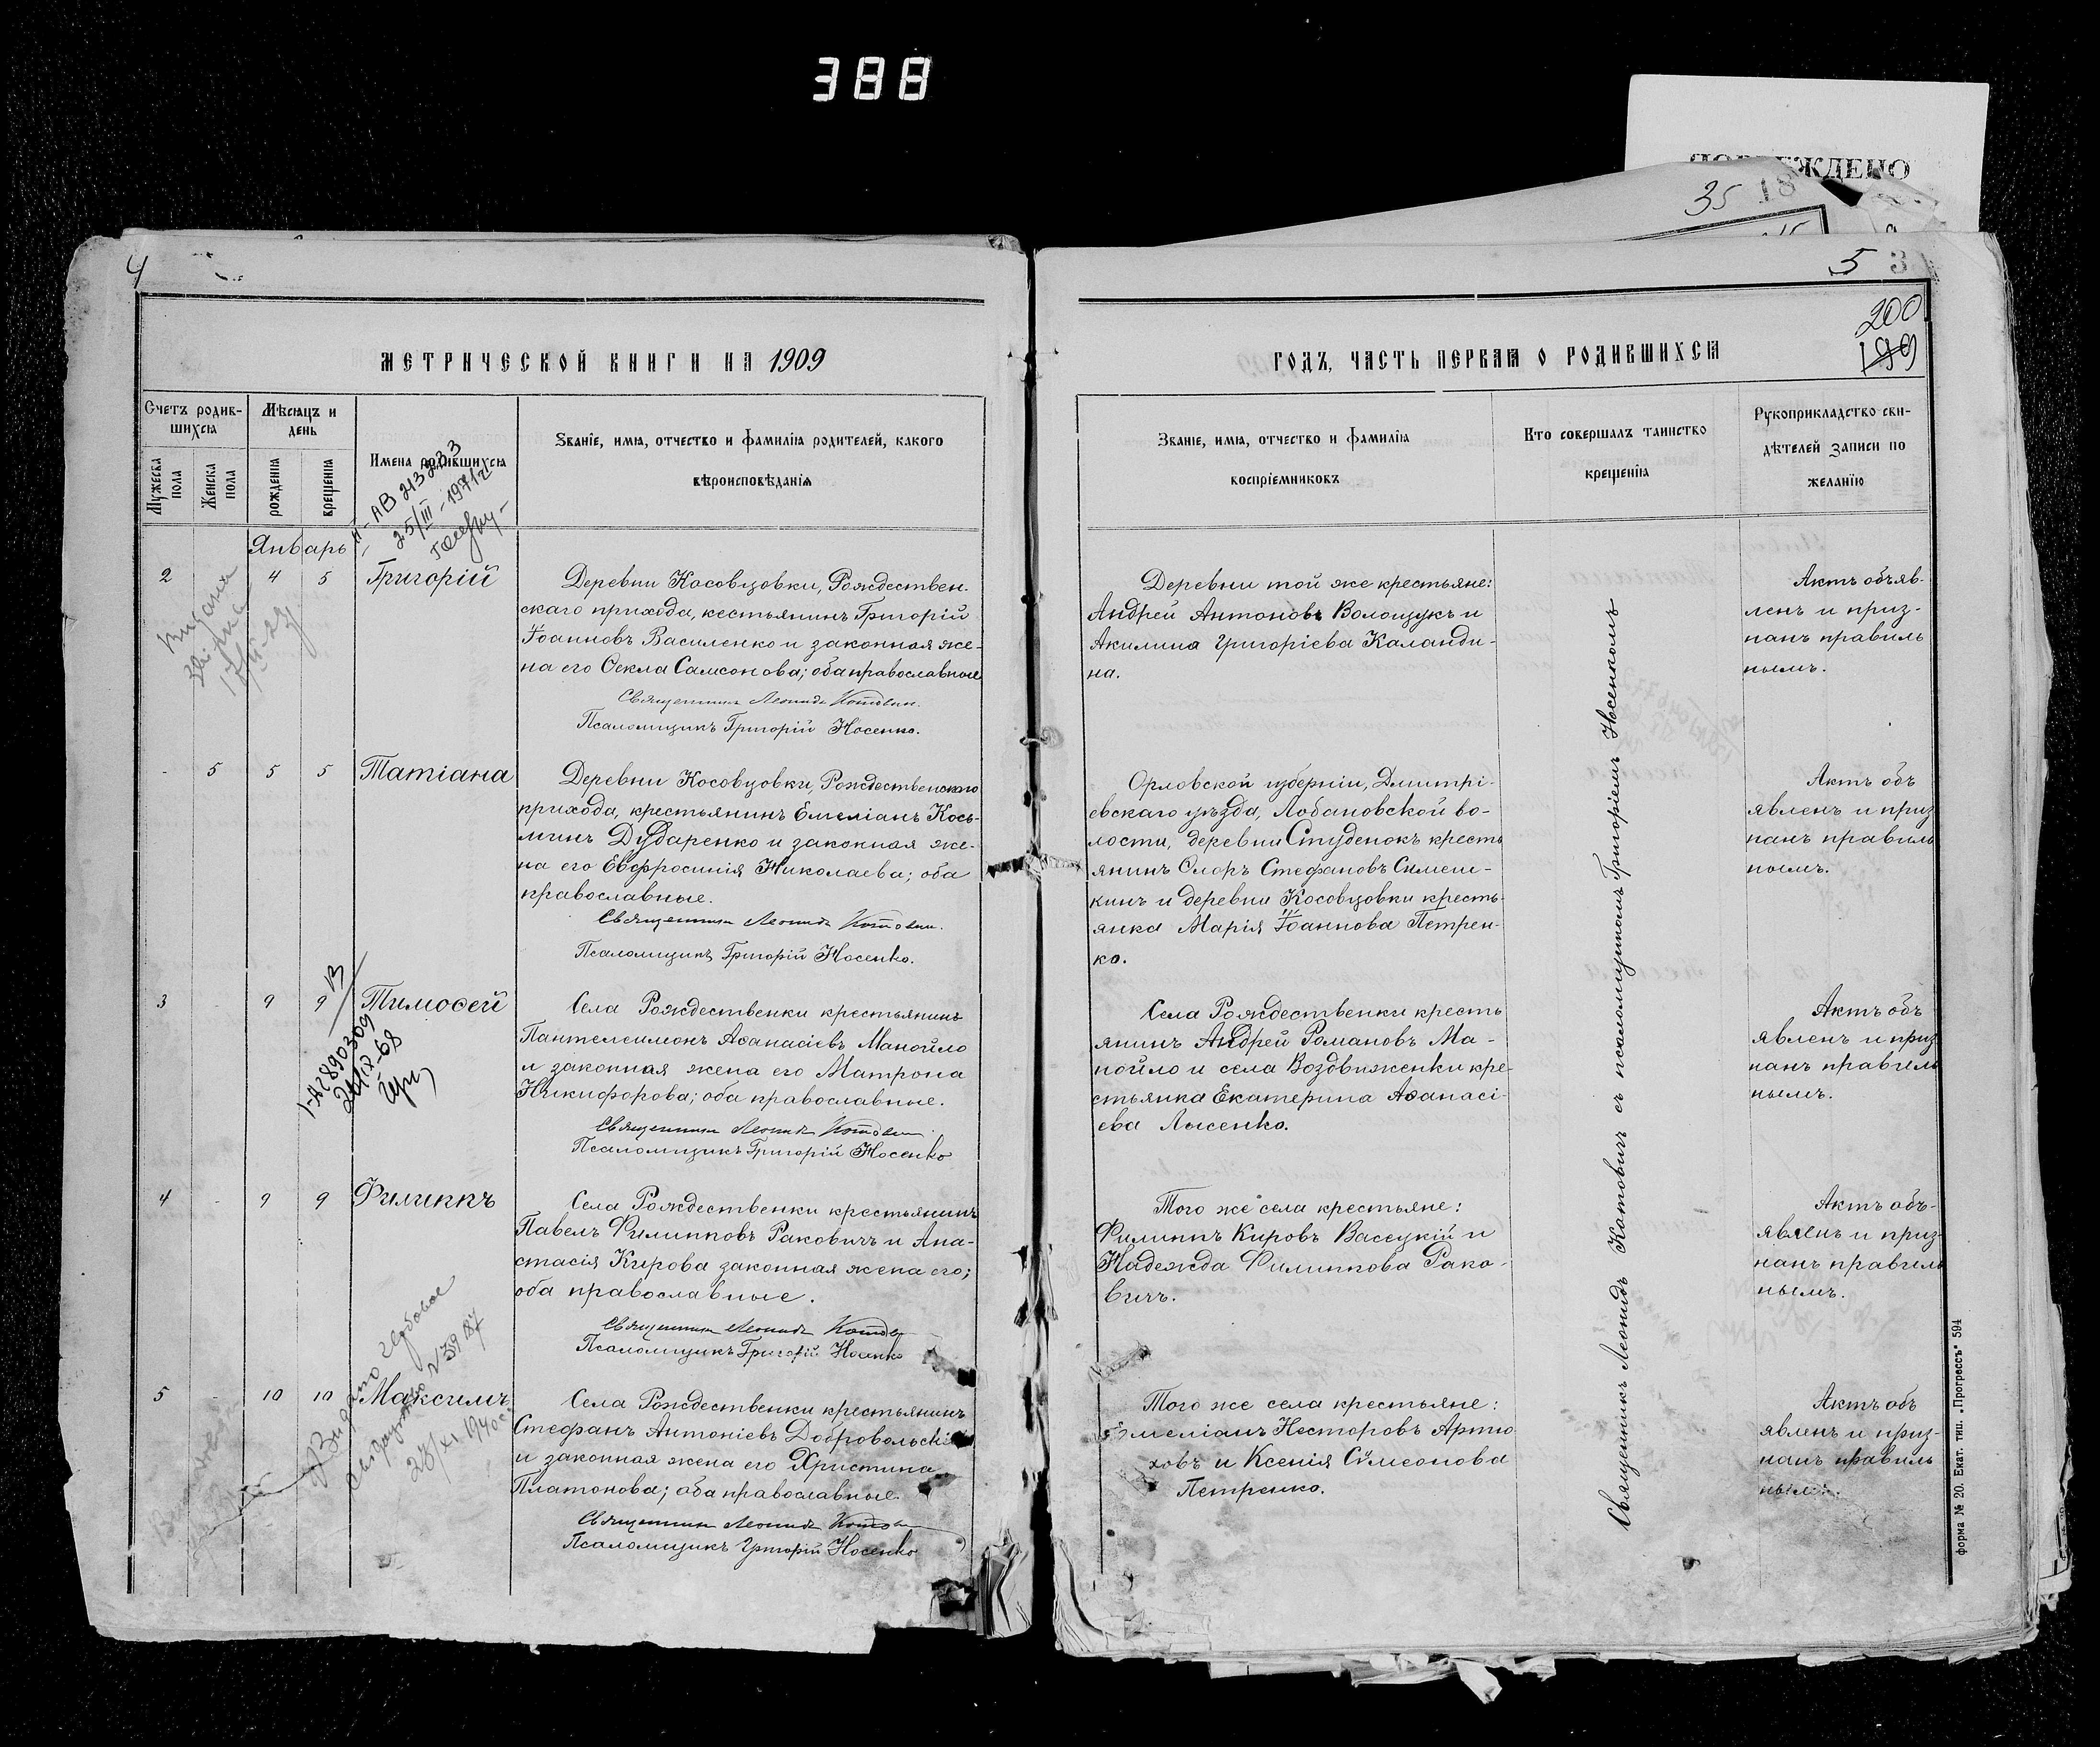 388
ЖДЕНО
35 18
4
5 3
200
199
МЕТРИЧЕСКОЙ КНИГИ НА 1909
ГОДЪ, ЧАСТЬ ПЕРВАЯ О РОДИВШИХСЯ
Счетъ родив-
шихся
Мужеска пола
Женска пола
Мѣсяцъ и
день
рожденія
крещенія
Имена родившихся
Званіе, имя, отчество и фамилія родителей, какого
вѣроисповѣданія
Званіе, имя, отчество и фамилія
воспріемниковъ
Кто совершалъ таинство
крещенія
Рукоприкладство сви-
дѣтелей записи по
желанію
II-АВ 213233
25/III-1971г
Январь
2 4 5 Григорій
Деревни Косовцовки, Рождествен-
скаго прихода, кестьянинъ Григорій
Іоанновъ Василенко и законная же-
на его Ѳекла Самсонова; оба православные
Священникъ Леонидъ Котович.
Псаломщикъ Григорій Носенко.
Деревни той же крестьяне:
Андрей Антоновъ Волощукъ и
Акилина Григоріева Каланди-
на.
Актъ объяв-
ленъ и приз-
нанъ правиль
нымъ.
- 5 5 5 Татіана
Деревни Косовцовки, Рождественскаго
прихода, крестьянинъ Емеліанъ Кось-
минъ Дударенко и законная же-
на его Евфросинія Николаева; оба
православные.
Священникъ Леонидъ Котович.
Псаломщикъ Григорій Носенко.
Орловской губерніи, Дмитрі-
евскаго уѣзда, Лобановской во-
лости, деревни Студенокъ кресть
янинъ Ѳлоръ Стефановъ Симеш-
кинъ и деревни Косовцовки кресть-
янка Марія Іоаннова Петрен-
ко.
Актъ объ
явленъ и приз
нанъ правиль
нымъ.
3 - 9 9 Тимоѳей
I-АГ 890309
Села Рождественки крестьянинъ
Пантелеимонъ Аѳанасіевъ Манойло
и законная жена его Матрона
Никифорова; оба православные.
Священникъ Леонидъ Котович
Псаломщикъ Григорій Носенко
Села Рождественки кресть
янинъ Андрей Романовъ Ма-
нойло и села Воздвиженки кре-
стьянка Екатерина Аѳанасі-
ева Лысенко.
Актъ объ
явленъ и приз
нанъ правиль
нымъ.
4 - 9 9 Филиппъ
Села Рождественки крестьянинъ
Павелъ Филипповъ Раковичъ и Ана-
стасія Кирова законная жена его;
оба православные.
Священникъ Леонидъ Котович
Псаломщикъ Григорій Носенко
Того же села крестьяне:
Филиппъ Кировъ Васецкій и
Надежда Филиппова Рако-
вичъ.
Актъ объ-
явленъ и приз-
нанъ правиль
нымъ.
5 - 10 10 Максимъ
Выдано гербовое
свидетство N 35987
28/XI 1940 г
Села Рождественки крестьянинъ
Стефанъ Антоніевъ Добровольскій
и законная жена его Христина
Платонова; оба православные.
Священникъ Леонидъ Котович
Псаломщикъ Григорій Носенко
Того же села крестьяне:
Емеліанъ Несторовъ Артю
ховъ и Ксенія Сѵмеонова
Петренко.
Актъ объ
явленъ и приз-
нанъ правиль
нымъ.
Священникъ Леонидъ Котовичъ съ псаломщикомъ Григоріемъ Носенкомъ
форма № 20. Екат. тип. „Прогрессъ" 594